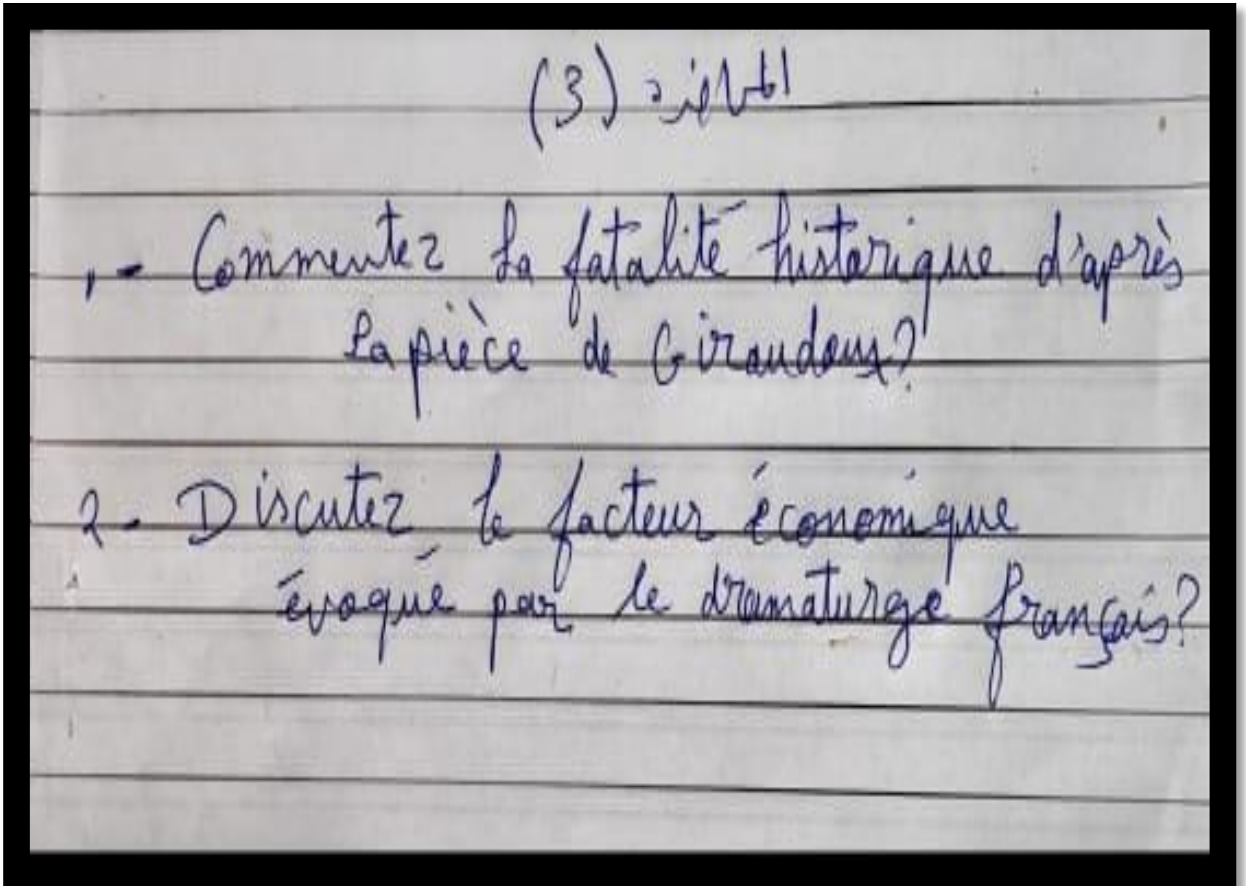 (3)
1- Commentez la fatalité historique d'après
la pièce de Giraudoux?
2- Discutez le facteur économique
évoqué par le dramaturge français?